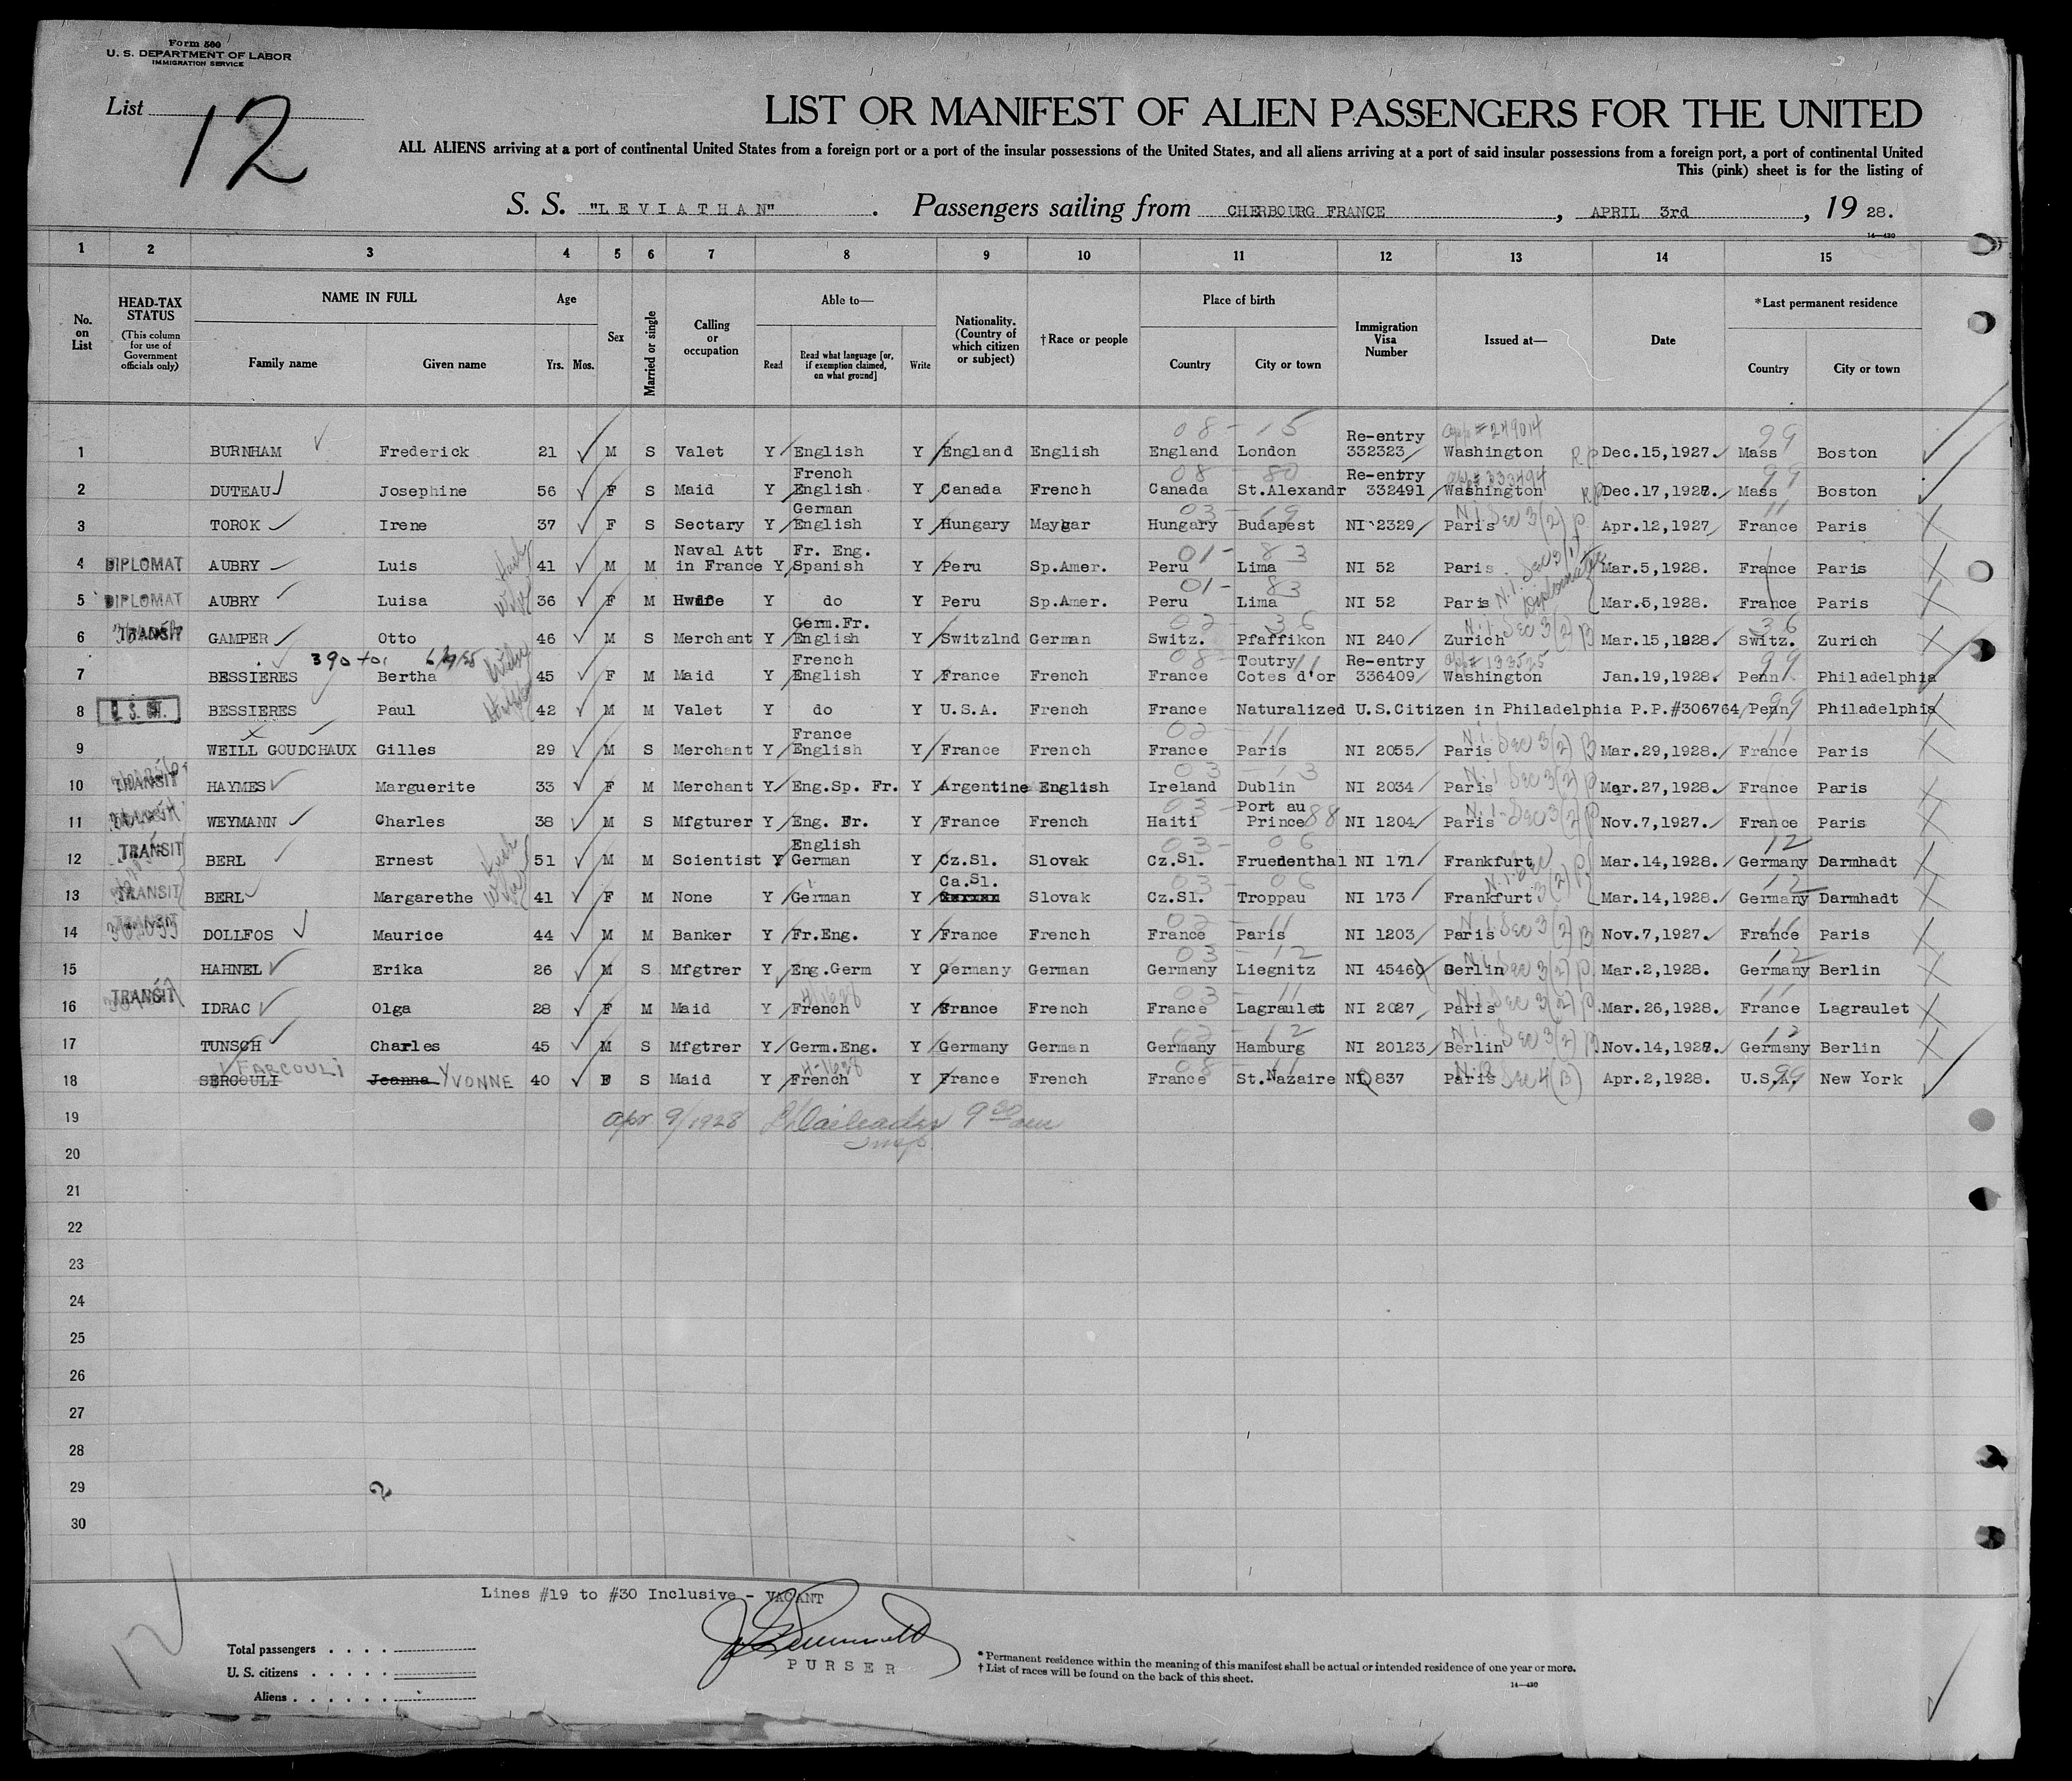 Form 500
U. S. DEPARTMENT OF LABOR
IMMIGRATION SERVICE
List 12
LIST OR MANIFEST OF ALIEN PASSENGERS FOR THE UNITED
ALL ALIENS arriving at a port of continental United States from a foreign port or a port of the insular possessions of the United States, and all aliens arriving at a port of said insular possessions from a foreign port, a port of continental United
This (pink) sheet is for the listing of
S. S. "LEVIATHAN". Passengers sailing from CHERBOURG FRANCE, APRIL 3rd, 19 28.
14—430
1 2 3 4 5 6 7 8 9 10 11 12 13 14 15
No. on List
HEAD-TAX STATUS
(This column for use of Government officials only)
NAME IN FULL
Family name Given name
Age
Yrs. Mos.
Sex
Married or single
Calling or occupation
Able to—
Read Read what language [or, if exemption claimed, on what ground] Write
Nationality. (Country of which citizen or subject)
†Race or people
Place of birth
Country City or town
Immigration Visa Number
Issued at—
Date
*Last permanent residence
Country City or town
1 BURNHAM Frederick 21 M S Valet Y English Y England English England London Re-entry 332323 Washington Dec.15,1927. Mass Boston
2 DUTEAU Josephine 56 F S Maid Y French English Y Canada French Canada St.Alexandr Re-entry 332491 Washington Dec.17,1927. Mass Boston
3 TOROK Irene 37 F S Sectary Y German English Y Hungary Maygar Hungary Budapest NI 2329 Paris Apr.12,1927 France Paris
4 DIPLOMAT AUBRY Luis 41 M M Naval Att in France Y Fr. Eng. Spanish Y Peru Sp.Amer. Peru Lima NI 52 Paris Mar.5,1928. France Paris
5 DIPLOMAT AUBRY Luisa 36 F M Y do Y Peru Sp.Amer. Peru Lima NI 52 Paris Mar.5,1928. France Paris
6 TRANSIT GAMPER Otto 46 M S Merchant Y Germ.Fr. English Y Switzlnd German Switz. Pfaffikon NI 240 Zurich Mar.15,1928. Switz. Zurich
7 BESSIERES Bertha 45 F M Maid Y French English Y France French France Toutry Cotes d'or Re-entry 336409 Washington Jan.19,1928. Penn Philadelphia
8 BESSIERES Paul 42 M M Valet Y do Y U.S.A. French France Naturalized U.S.Citizen in Philadelphia P.P.#306764 Penn Philadelphia
9 WEILL GOUDCHAUX Gilles 29 M S Merchant Y France English Y France French France Paris NI 2055 Paris Mar.29,1928. France Paris
10 TRANSIT HAYMES Marguerite 33 F M Merchant Y Eng.Sp. Fr. Y Argentine English Ireland Dublin NI 2034 Paris Mar.27,1928. France Paris
11 WEYMANN Charles 38 M S Mfgturer Y Eng. Fr. Y France French Haiti Port au Prince NI 1204 Paris Nov.7,1927. France Paris
12 TRANSIT BERL Ernest 51 M M Scientist Y English German Y Cz.Sl. Slovak Cz.Sl. Fruedenthal NI 171 Frankfurt Mar.14,1928. Germany Darmhadt
13 TRANSIT BERL Margarethe 41 F M None Y German Y Ca.Sl. Slovak Cz.Sl. Troppau NI 173 Frankfurt Mar.14,1928. Germany Darmhadt
14 TRANSIT DOLLFOS Maurice 44 M M Banker Y Fr.Eng. Y France French France Paris NI 1203 Paris Nov.7,1927. France Paris
15 HAHNEL Erika 26 M S Mfgtrer Y Eng.Germ Y Germany German Germany Liegnitz NI 45460 Berlin Mar.2,1928. Germany Berlin
16 TRANSIT IDRAC Olga 28 F M Maid Y French Y France French France Lagraulet NI 2027 Paris Mar.26,1928. France Lagraulet
17 TUNSCH Charles 45 M S Mfgtrer Y Germ.Eng. Y Germany German Germany Hamburg NI 20123 Berlin Nov.14,1927. Germany Berlin
18 SERCOULI FARCOULI Jeanna YVONNE 40 F S Maid Y French Y France French France St.Nazaire NQ 837 Paris Apr.2,1928. U.S.A. New York
19 Apr 9/1928 9 30 am
20
21
22
23
24
25
26
27
28
29
30
Lines #19 to #30 Inclusive - VACANT
Total passengers
U. S. citizens
Aliens
PURSER
* Permanent residence within the meaning of this manifest shall be actual or intended residence of one year or more.
† List of races will be found on the back of this sheet.
14—430
12